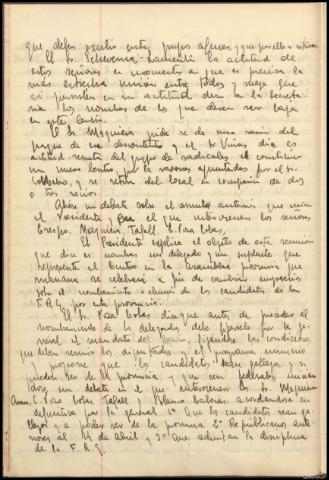 que deben existir entre grupos afines, y que por ello se
El Sr. Echeverria, lamenta la actitud de
estos señores en momentos en que es precisa la
más estrecha unión entre todos y ruega que
si persisten en su actitud den a la Secreta-
ria los nombres de los que deseen ser baja
en este Centro.
El Sr. Mosquera pide se de una razón del
porque de ese descontento y el Sr. Viñas dice es
actitud resuelta del grupo de radicales el constituir
un nuevo Centro por la razones apuntadas por el Sr.
y se retira del local en compañia de dos
o tres socios.
Abrese un debate sobre el asunto anterior que inicia
el Presidente y en el que intervienen los señores
Crespo, Mosquera, Tafall, C. Poza Cobas,
El Presidente explica el objeto de esta reunion
que dice es: nombrar un delegado y un suplente que
represente el Centro en la asamblea provincial que
mañana se celebrará a fin de cambiar impresiones
sobre el nombramiento o elección de los candidatos de la
F.R.G. por esta provincia.
El Sr. Poza Cobas dice que antes de proceder al
nombramiento de los delegados debe fijarsele por la ge-
neral el mandato del Centro, fijandose las condiciones
que deben reunir los diputados y el programa minimo
y propone que los candidatos sean gallegos y si
pueden ser de la provincia y que sean federales, inician-
dose un debate en el que intervienen los Sr. Mosquera
C. Poza Cobas Tafall y Blanco Cabezas acordandose en
definitiva por la general 1º Que los candidatos sean ga-
llegos y a poder ser de la provincia 2º Republicanos ante-
riores al 14 de Abril y 3º Que admitan la disciplina
de la F.R.G.